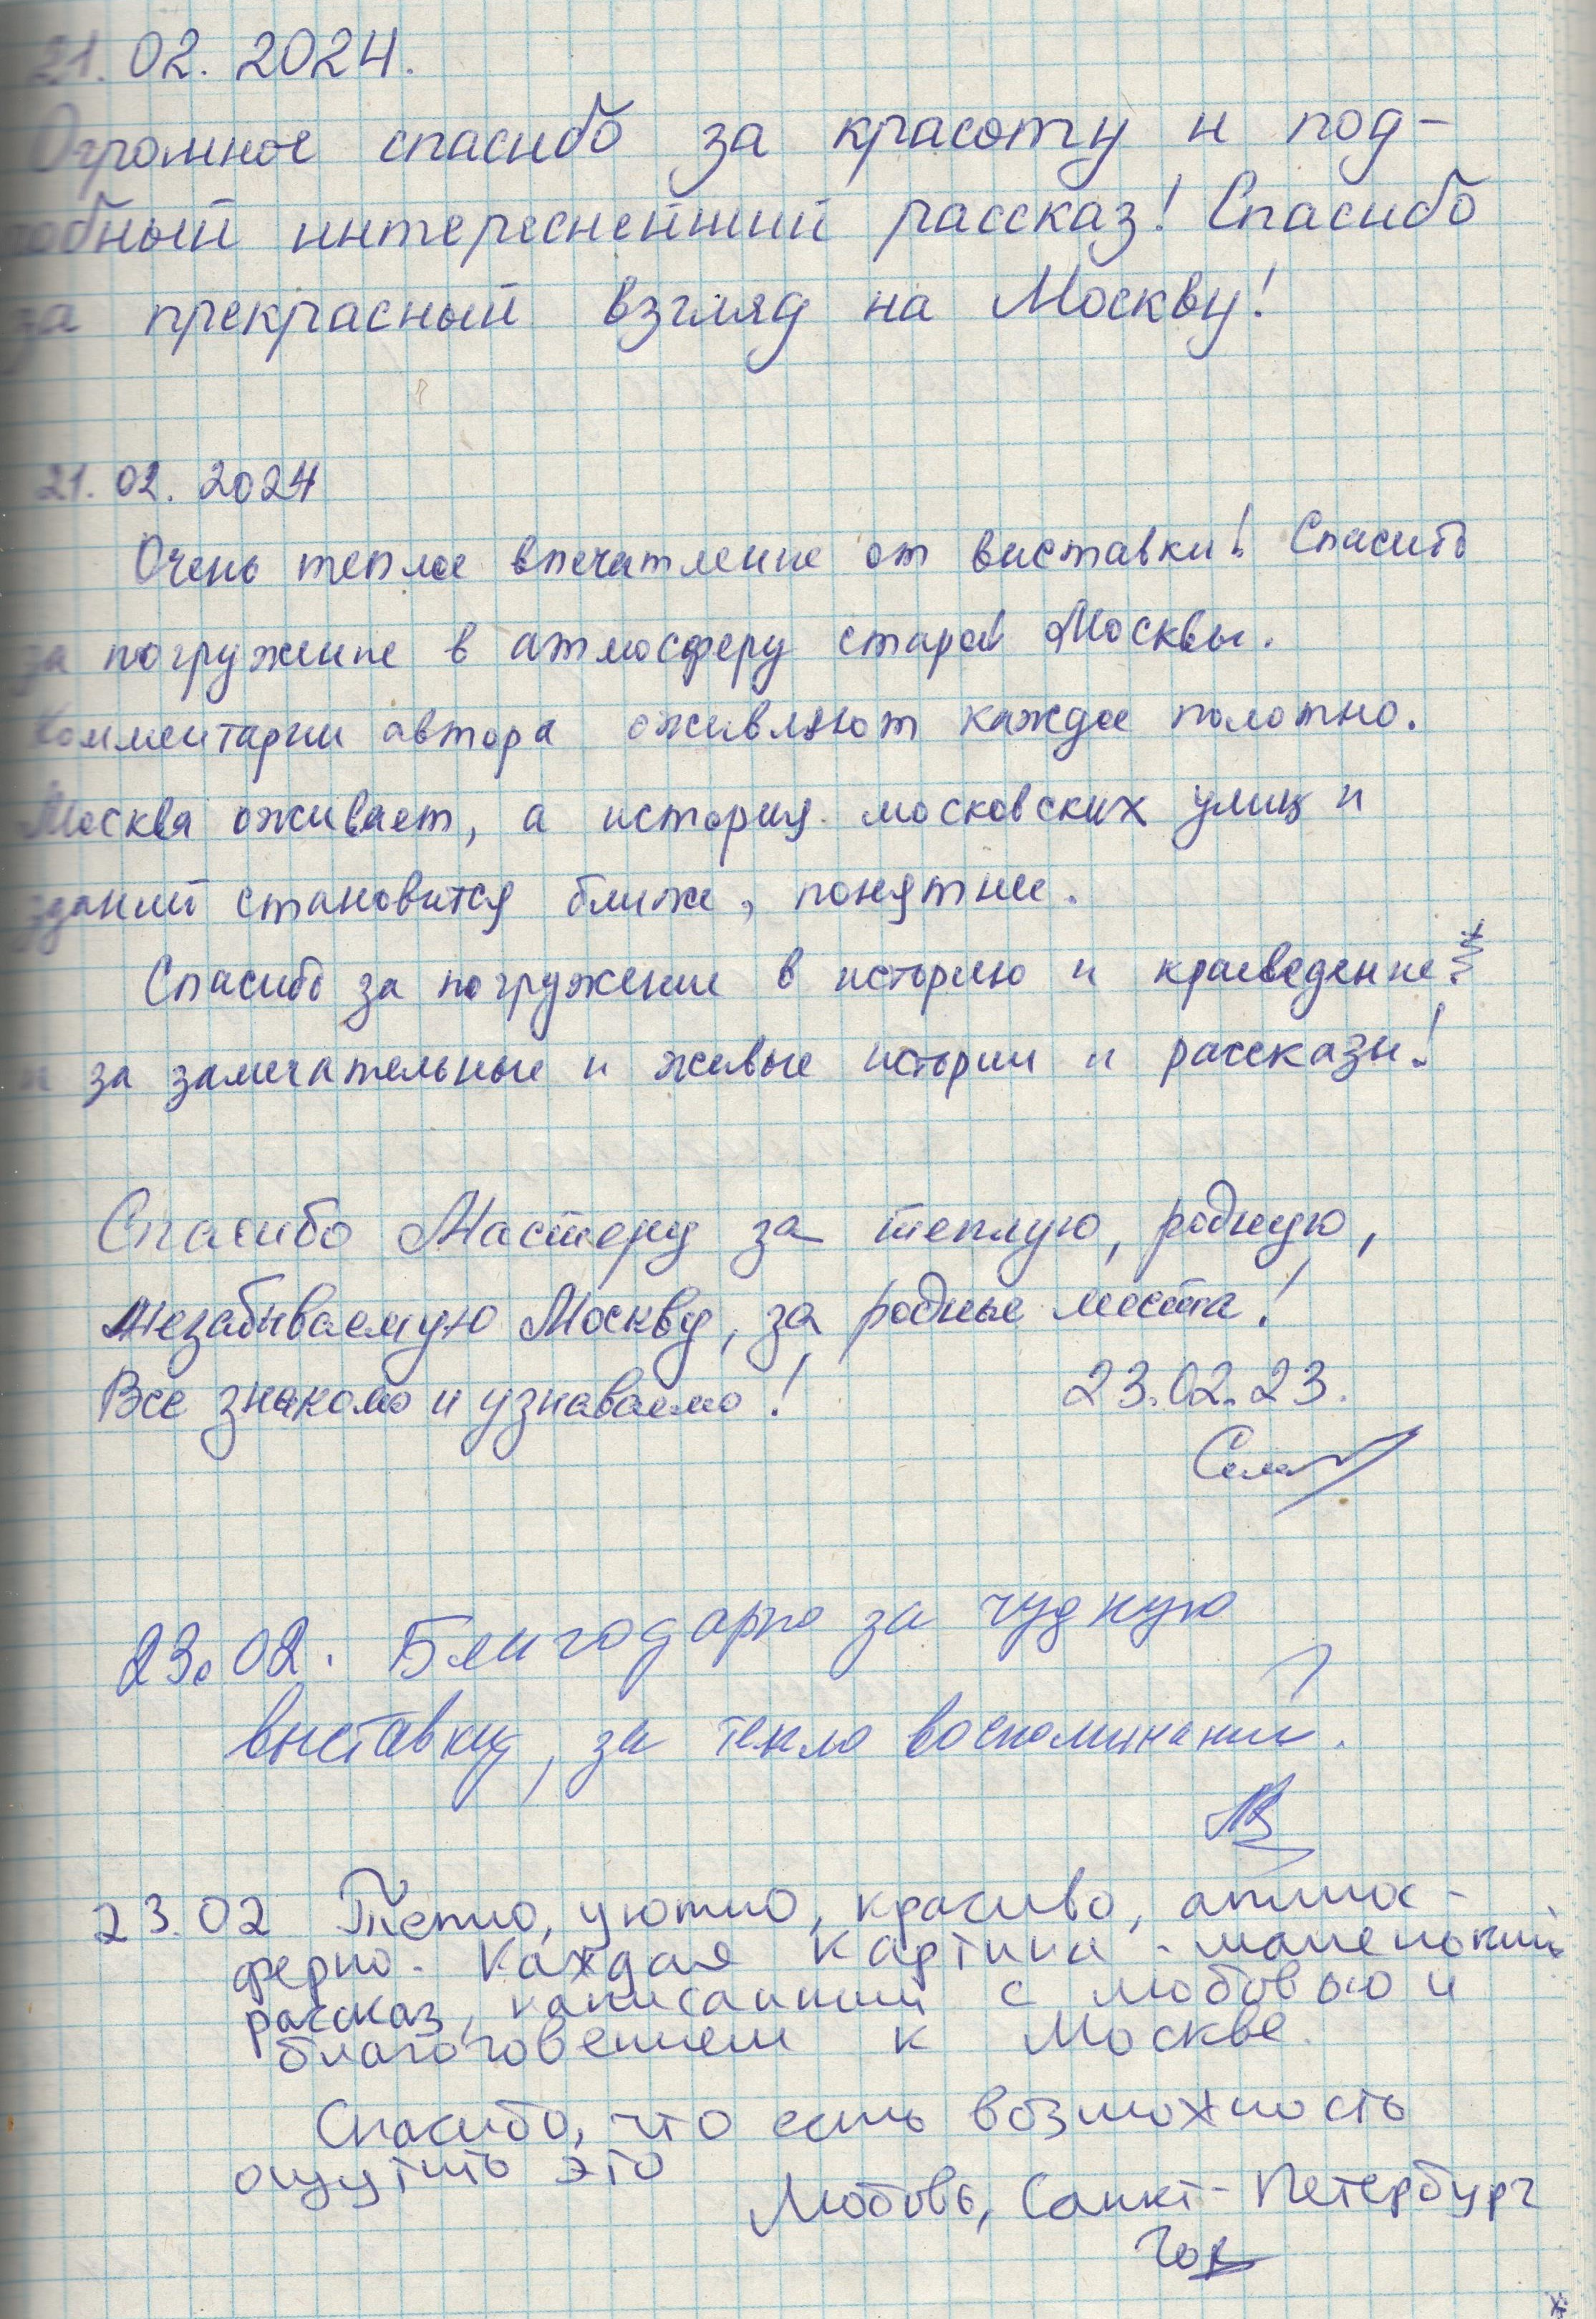 21. 02. 2024.
Огромное спасибо за красоту и под-
робный интереснейший рассказ! Спасибо
за прекрасный взгляд на Москву!
21. 02. 2024
Очень теплое впечатление от выставки! Спасибо
за погружение в атмосферу старой Москвы.
Комментарии автора оживляют каждое полотно.
Москва оживает, а история московских улиц и
зданий становится ближе, понятнее.
Спасибо за погружение в историю и краеведение
и за замечательные и живые истории и рассказы!
Спасибо Мастеру за теплую, родную,
незабываемую Москву, за родные места!
Все знакомо и узнаваемо! 23.02.23.
23.02. Благодарю за чудную
выставку, за тепло воспоминаний.
23.02 Тепло, уютно, красиво, атмос-
ферно. Каждая картина - маленький
рассказ, написанный с любовью и
благоговением к Москве.
Спасибо, что есть возможность
ощутить это
Любовь, Санкт-Петербург